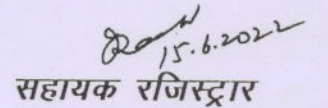 15.6.2022
सहायक रजिस्ट्रार